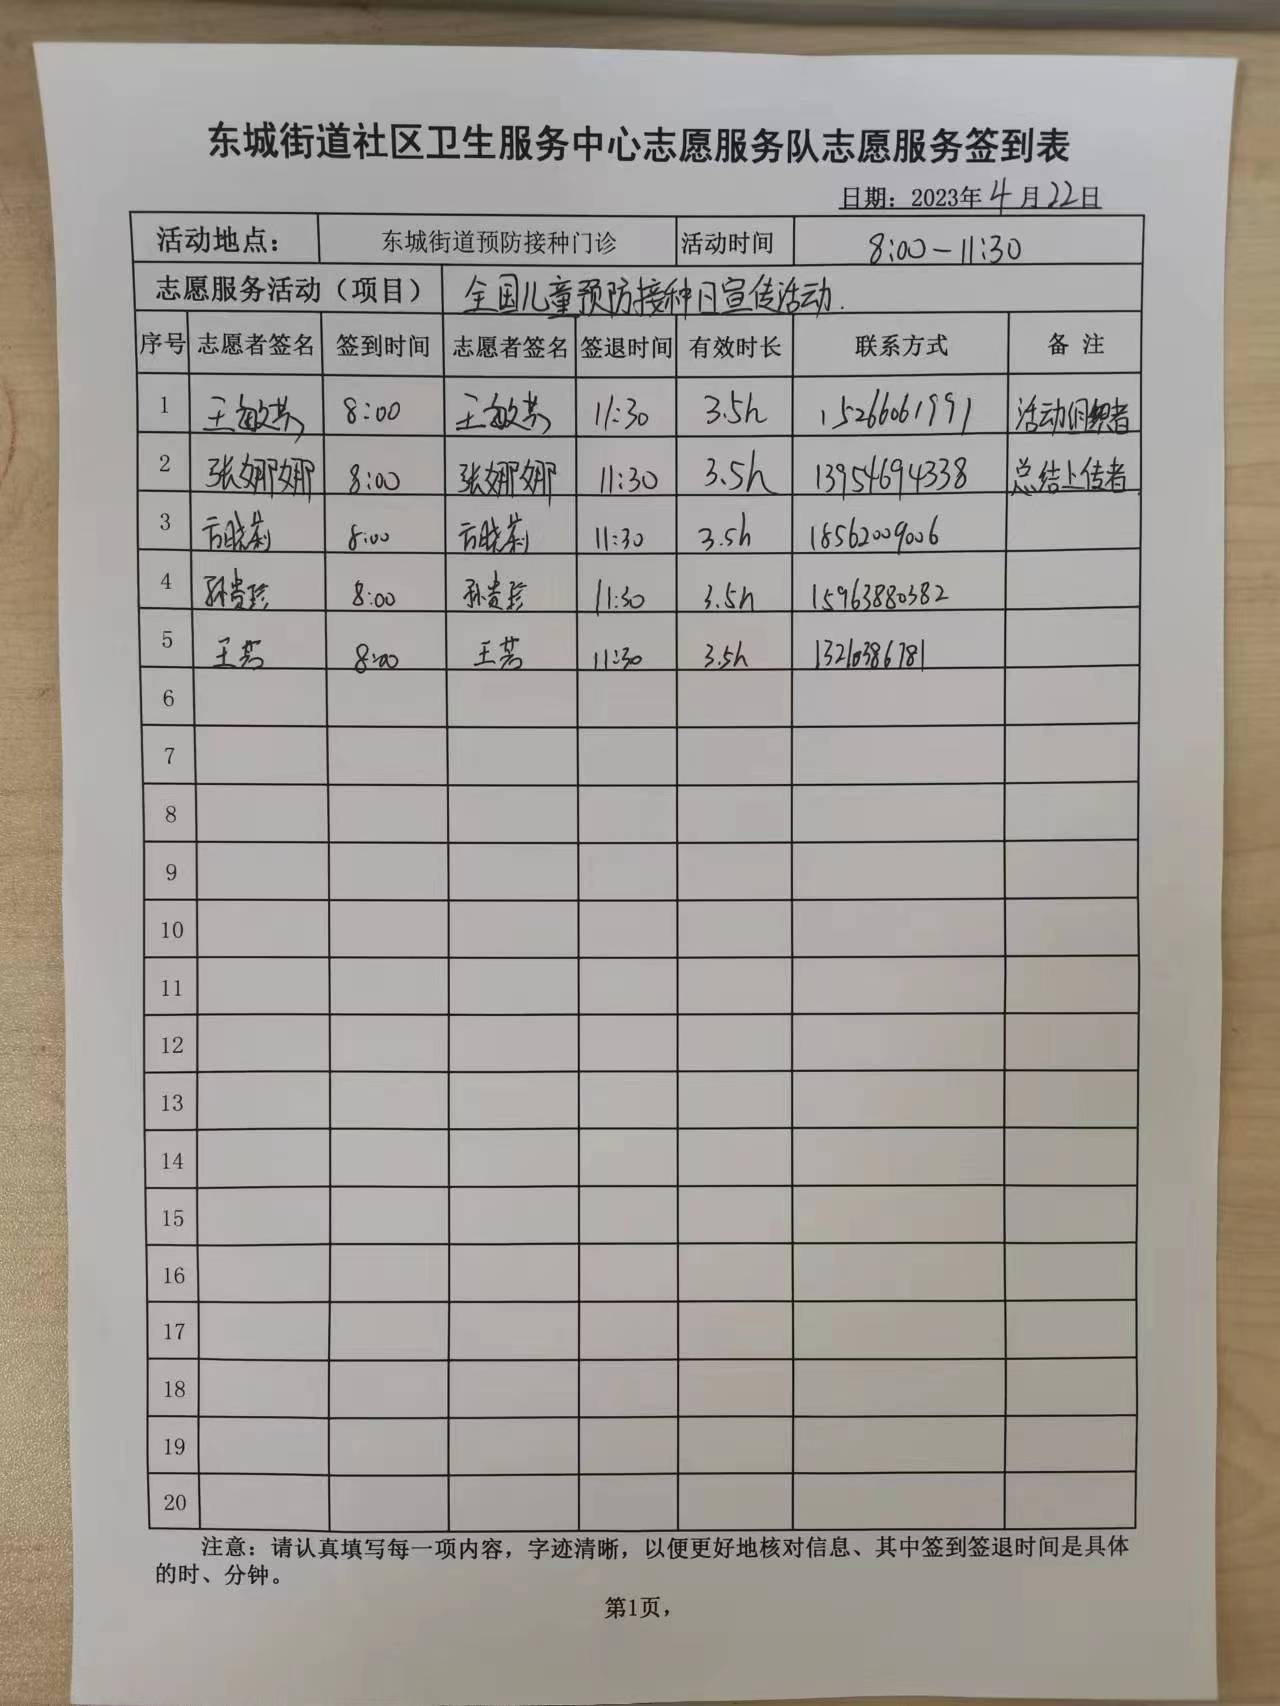 东城街道社区卫生服务中心志愿服务队志愿服务签到表
日期：2023年4月22日
活动地点： 东城街道预防接种门诊 活动时间 8:00-11:30
志愿服务活动（项目） 全国儿童预防接种日宣传活动.
序号 志愿者签名 签到时间 志愿者签名 签退时间 有效时长 联系方式 备 注
1 王敏芳 8:00 王敏芳 11:30 3.5h 15266061991 活动组织者
2 张娜娜 8:00 张娜娜 11:30 3.5h 13954694338 总结上传者.
3 方晓莉 8:00 方晓莉 11:30 3.5h 18562009006
4 孙贵珍 8:00 孙贵珍 11:30 3.5h 15963880382
5 王 8:00 王 11:30 3.5h
6
7
8
9
10
11
12
13
14
15
16
17
18
19
20
注意：请认真填写每一项内容，字迹清晰，以便更好地核对信息、其中签到签退时间是具体
的时、分钟。
第1页，